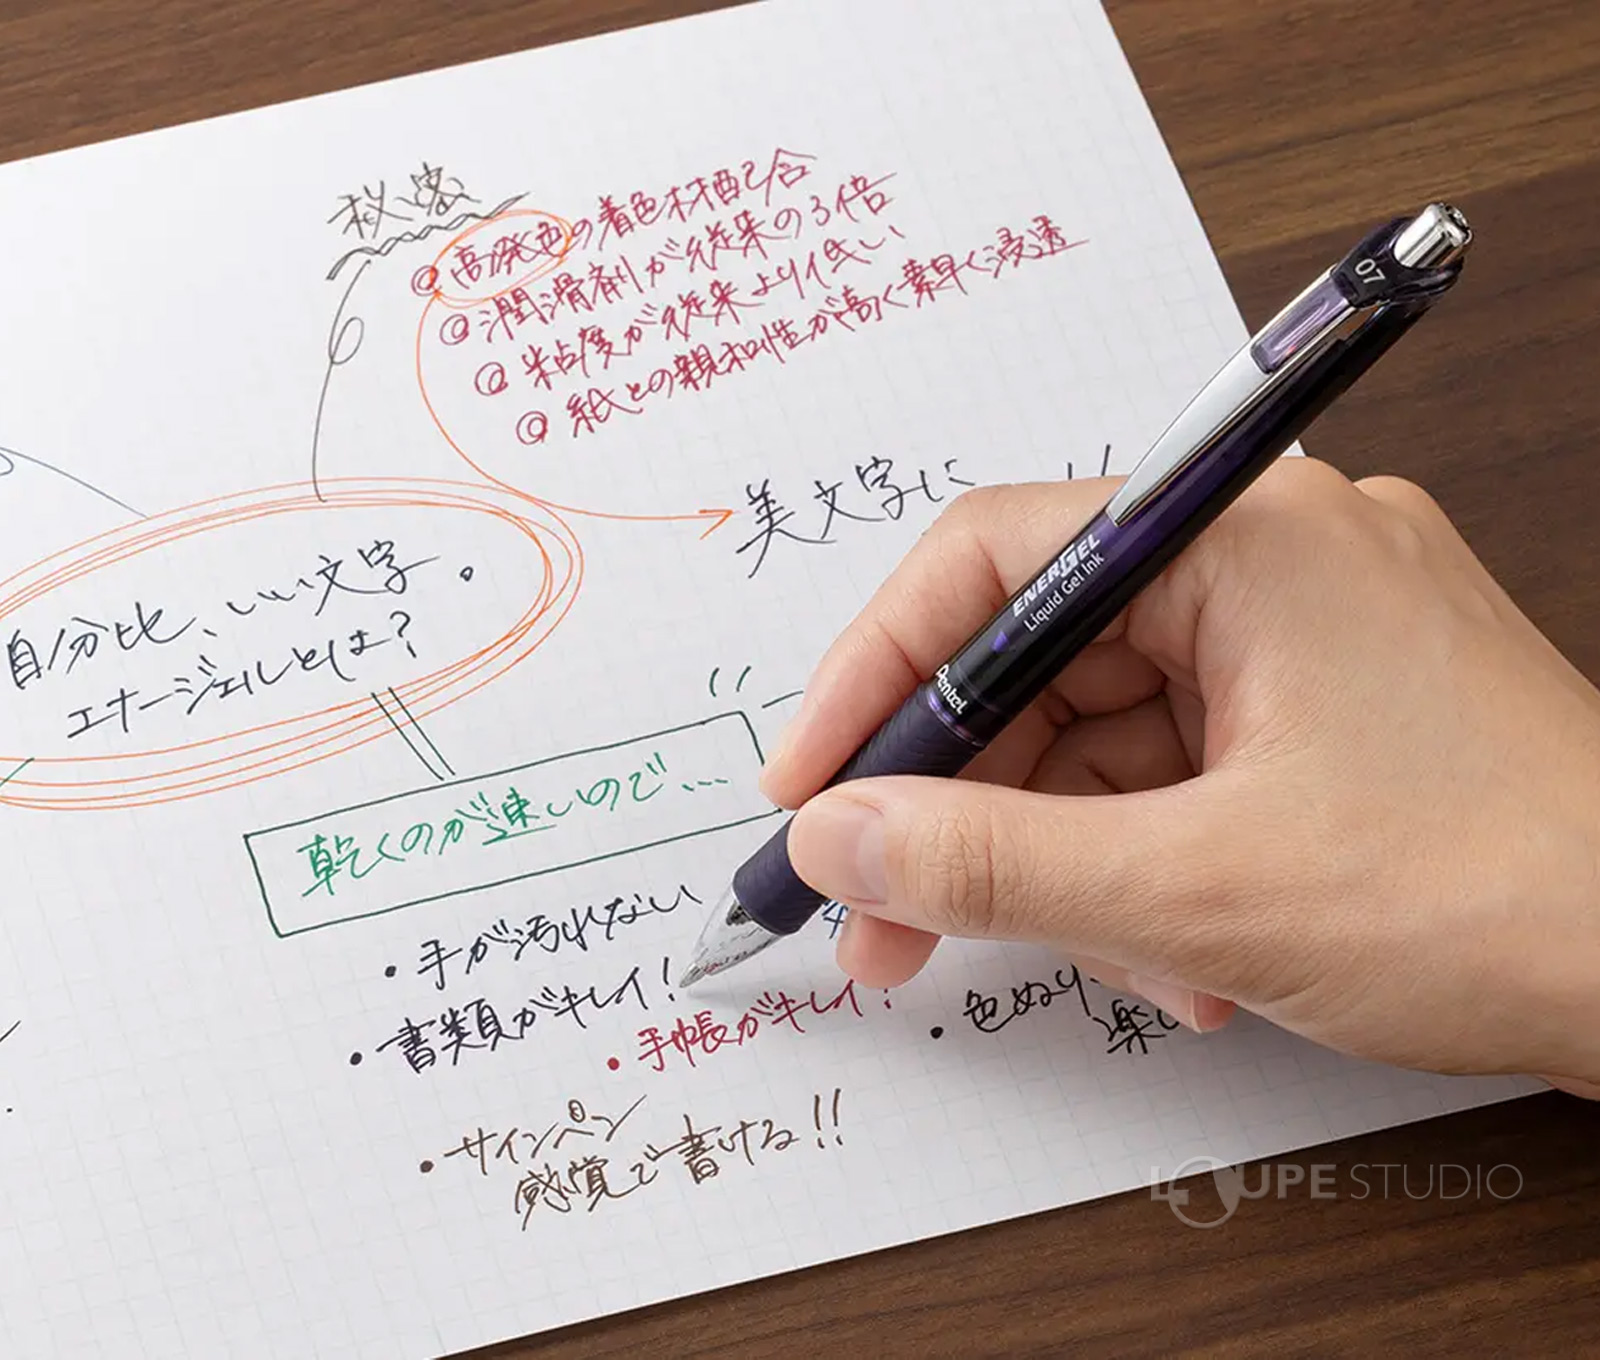 秘密
◎高発色の着色材配合
◎潤滑剤が従来の3倍
◎粘度が従来より低い
◎紙との親和性が高く素早く浸透
美文字に
自分比、いい文字。
エナージェルとは?
乾くのが速いので…
・手が汚れない
・書類がキレイ!
・手帳がキレイ!
・色ぬり
楽し
・サインペン
感覚で書ける!!
07
ENERGEL
Liquid Gel Ink
Pentel
LOUPE STUDIO